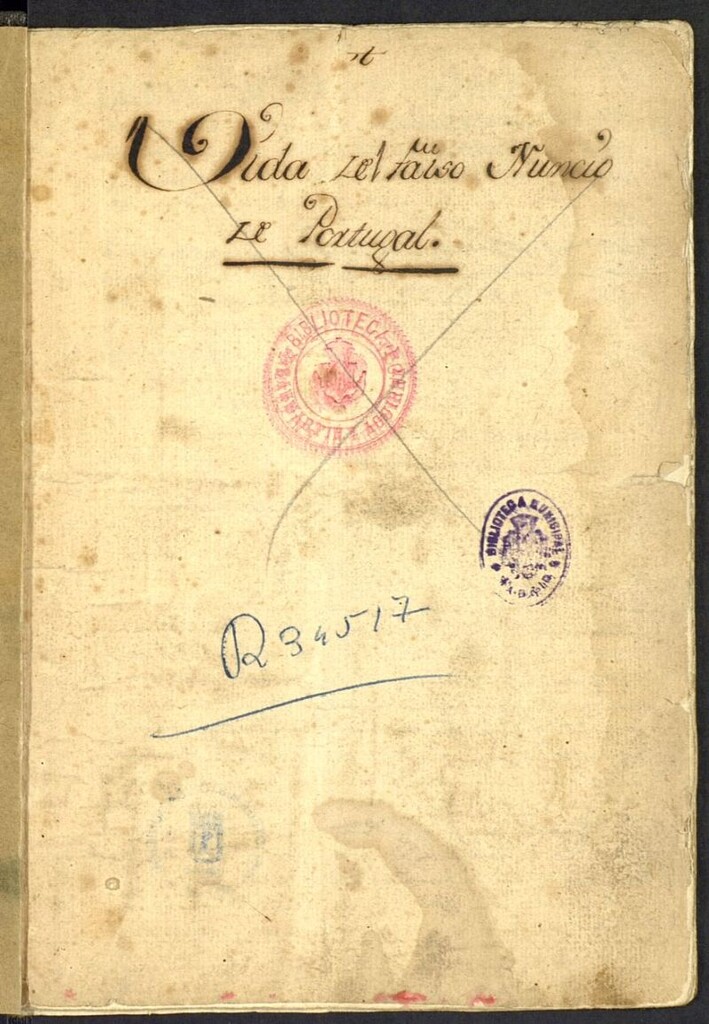 Vida del falso Nuncio
de Portugal.
BIBLIOTECA
BIBLIOTECA MUNICIPAL
MADRID
R 34517